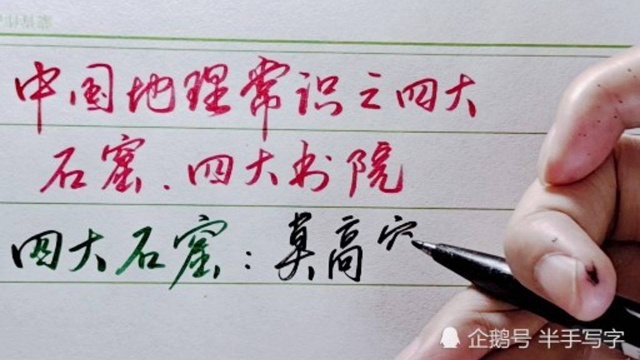 中国地理常识之四大
石窟、四大书院
四大石窟：莫高
企鹅号 半手写字